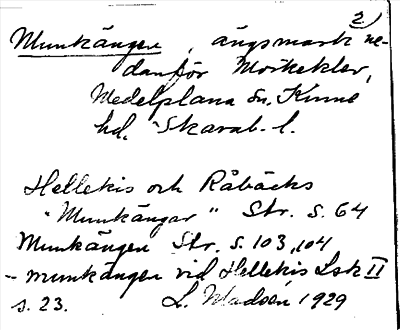 2)
Munkängen, ängsmark ne-
danför Mörkeklev,
Medelplana sn. Kinne
hd. Skarab. l.
Hellekis och Råbäcks
"Munkängar" Str. s. 64
Munkängen Str. s. 103, 104
– munkängen vid Hellekis Lsk II
s. 23. L. Madsén 1929